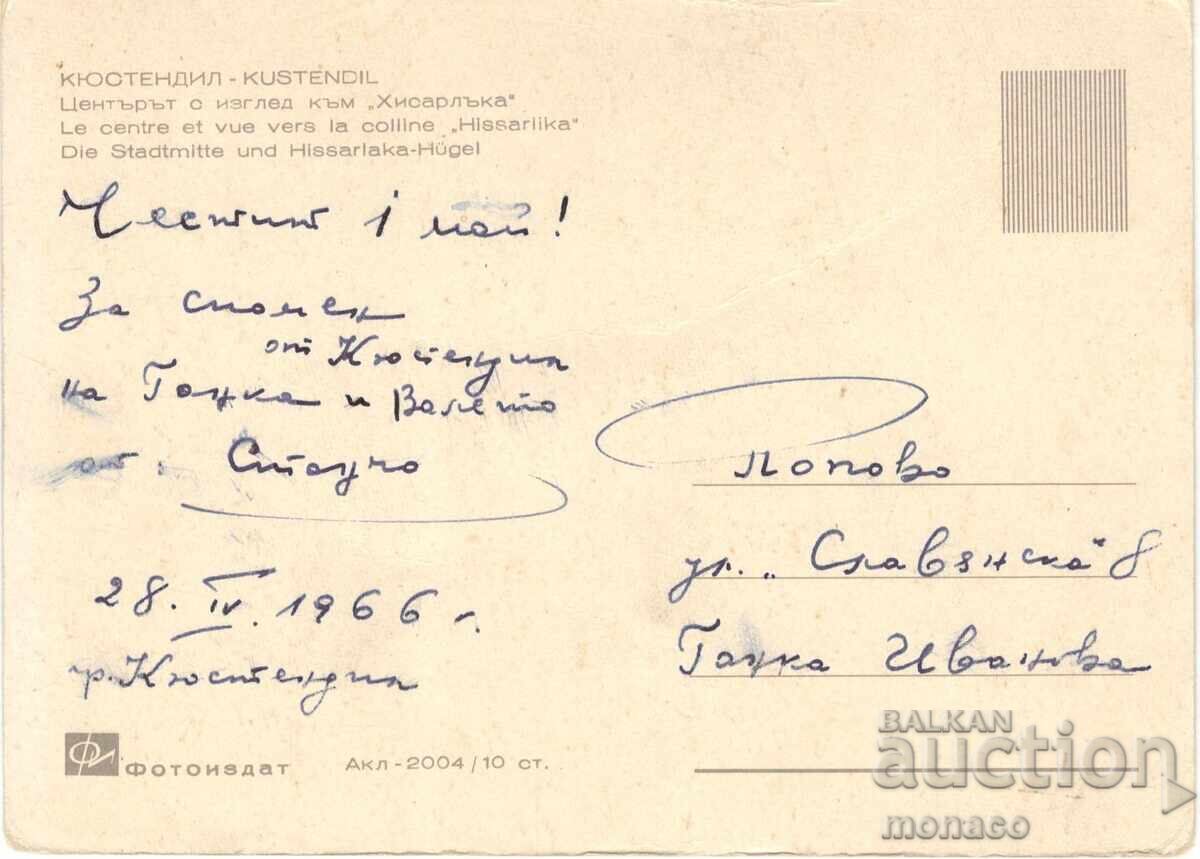 КЮСТЕНДИЛ - KUSTENDIL
Центърът с изглед към „Хисарлъка"
Le centre et vue vers la colline „Hissarlika"
Die Stadtmitte und Hissarlaka-Hügel
Честит 1 май!
За спомен
от Кюстендил
на Ганка и Валето
от: Станчо
28. IV. 1966 г.
гр. Кюстендил
Попово
ул. „Славянска" 8
Ганка Иванова
Фотоиздат
Акл-2004/10 ст.
BALKAN
auction
monaco